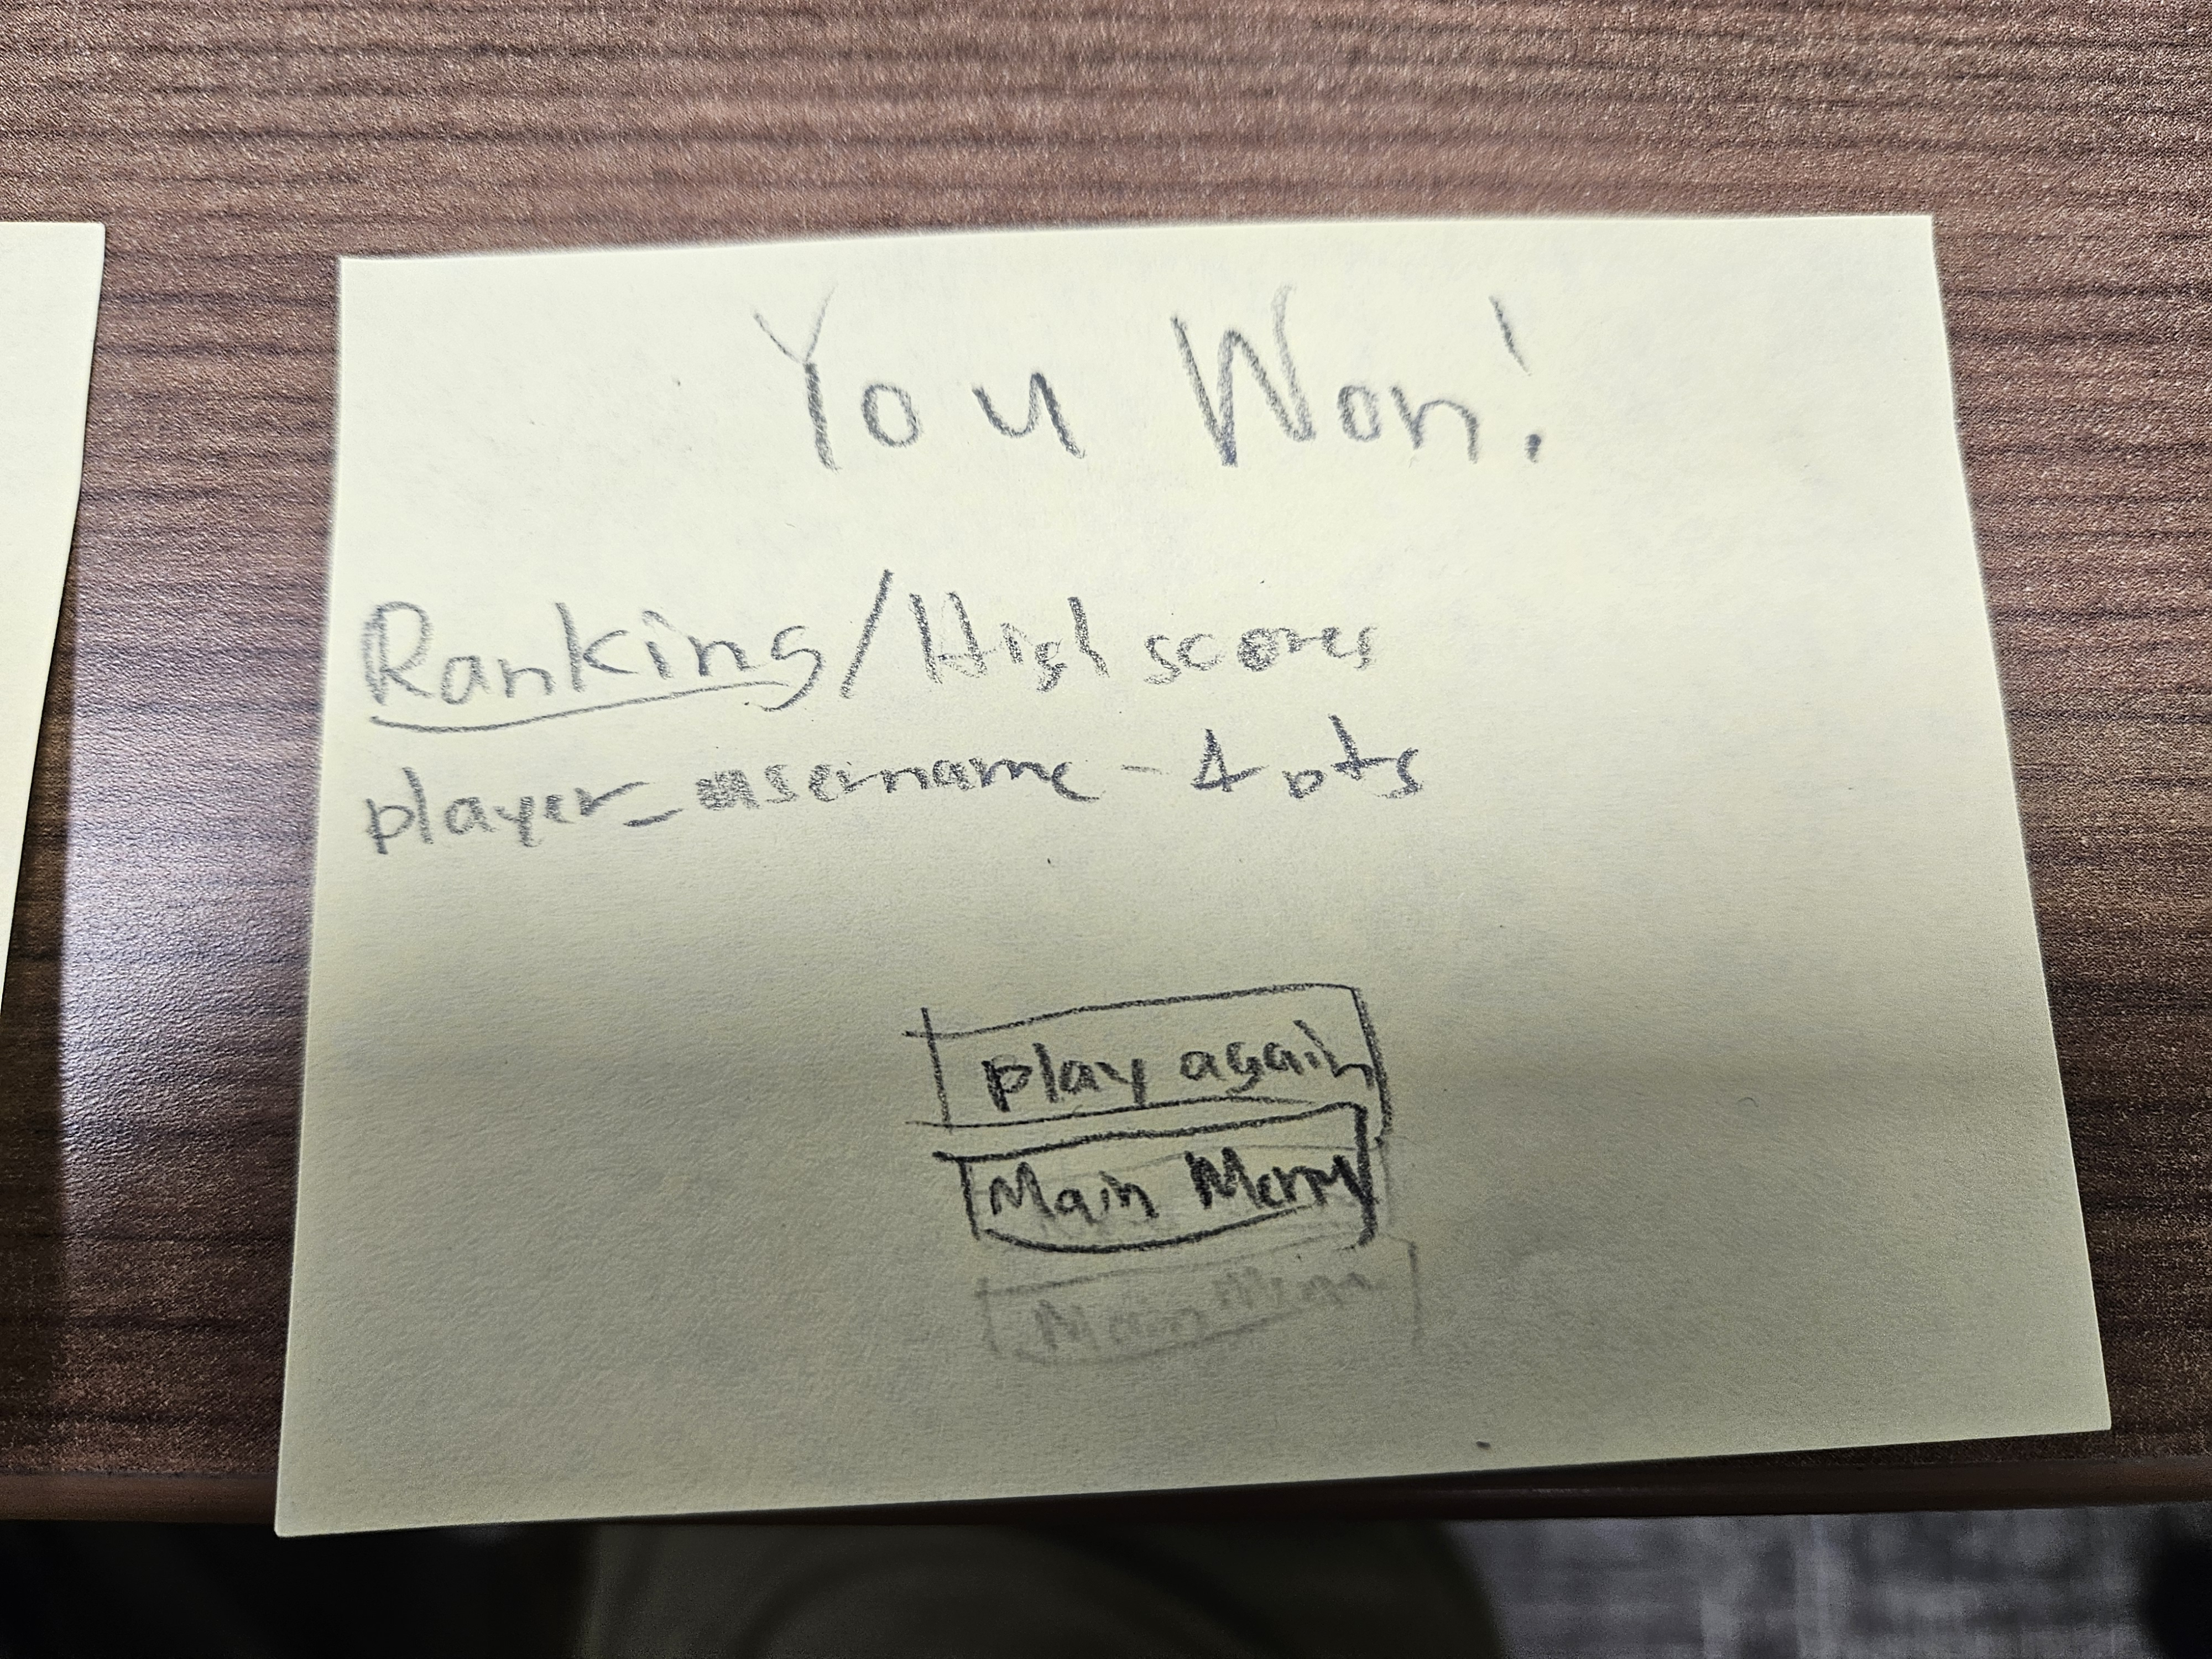 You Won!
Rankings/High score
player_username - 4 pts
play again
Main Menu
Main Menu